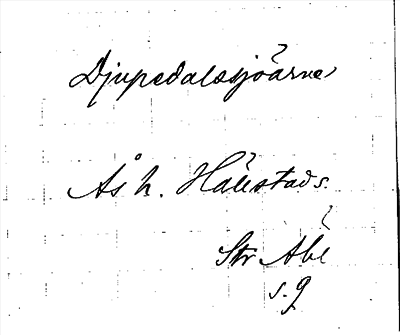 Djupedalssjöarne
Ås h. Hålestads.
Str Abl
s. 9